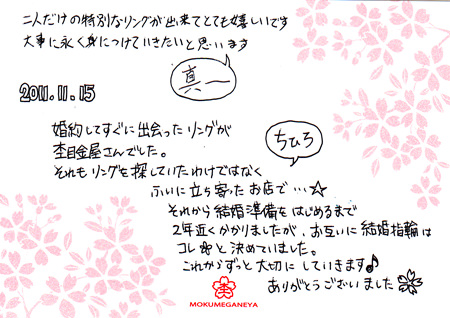 二人だけの特別なリングが出来てとても嬉しいです
大事に永く身につけていきたいと思います
真一
2011.11.15
婚約してすぐに出会ったリングが
杢目金屋さんでした。
それもリングを探していたわけではなく
ふいに立ち寄ったお店で…☆
それから結婚準備をはじめるまで
2年近くかかりましたが、お互いに結婚指輪は
コレ と決めていました。
これからずっと大切にしていきます♪
ありがとうございました
ちひろ
MOKUMEGANEYA